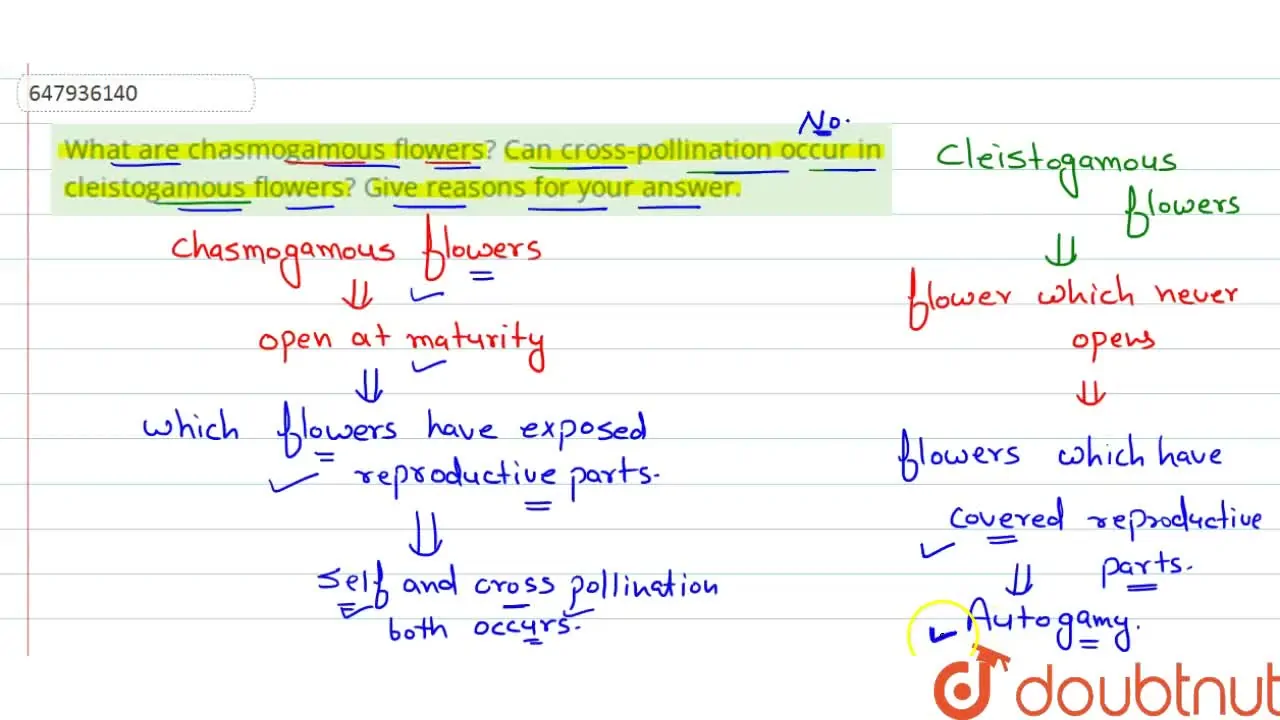 647936140
No.
What are chasmogamous flowers? Can cross-pollination occur in
cleistogamous flowers? Give reasons for your answer.
Chasmogamous flowers
open at maturity
which flowers have exposed
reproductive parts.
Self and cross pollination
both occurs.
Cleistogamous
flowers
flower which never
opens
flowers which have
covered reproductive
parts.
Autogamy.
doubtnut